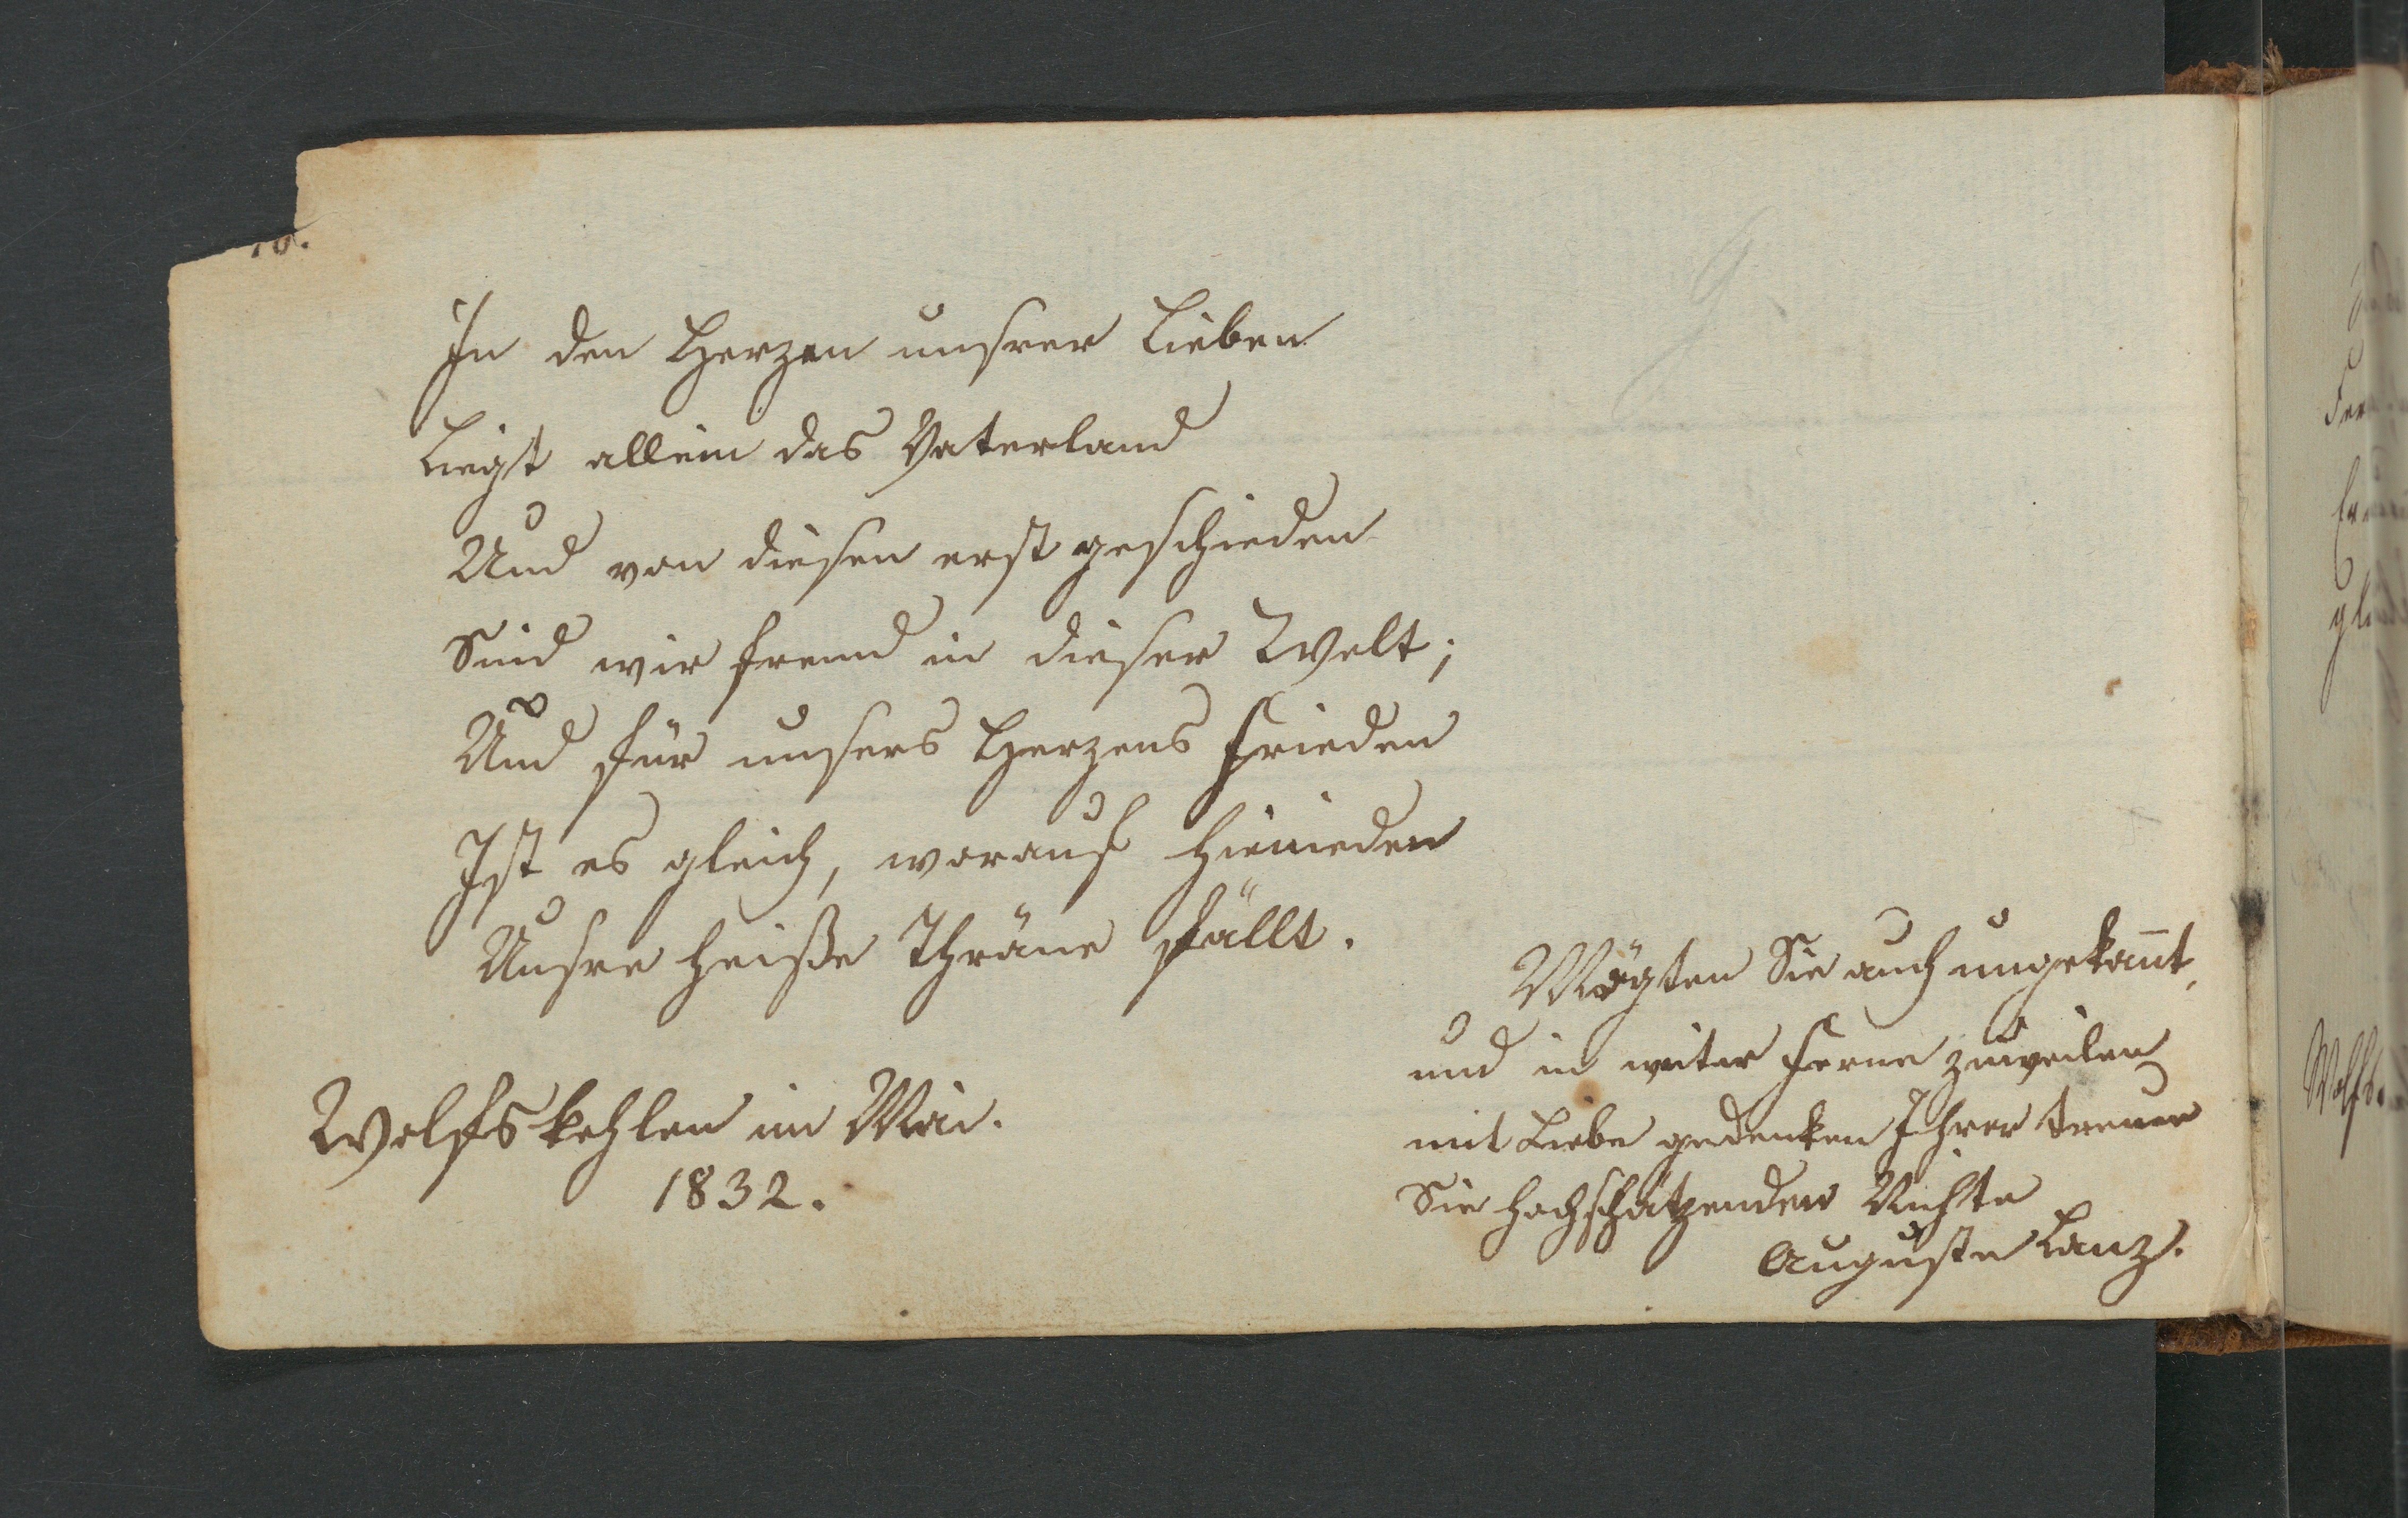 In den Herzen unsrer Lieben
Liegt allein das Vaterland
Und von diesen erst geschieden
Sind wir fremd in dieser Welt;
Und für unsers Herzens Frieden
Ist es gleich, worauf hienieden
Unsre heiße Thräne fällt.
Mögten Sie auch ungekan̄t,
und in weiter Ferne zuweilen
mit Liebe gedenken Ihrer treuen
Sie hochschätzenden Nichte
Auguste Lanz.
Wolfskehlen im Mai.
1832.